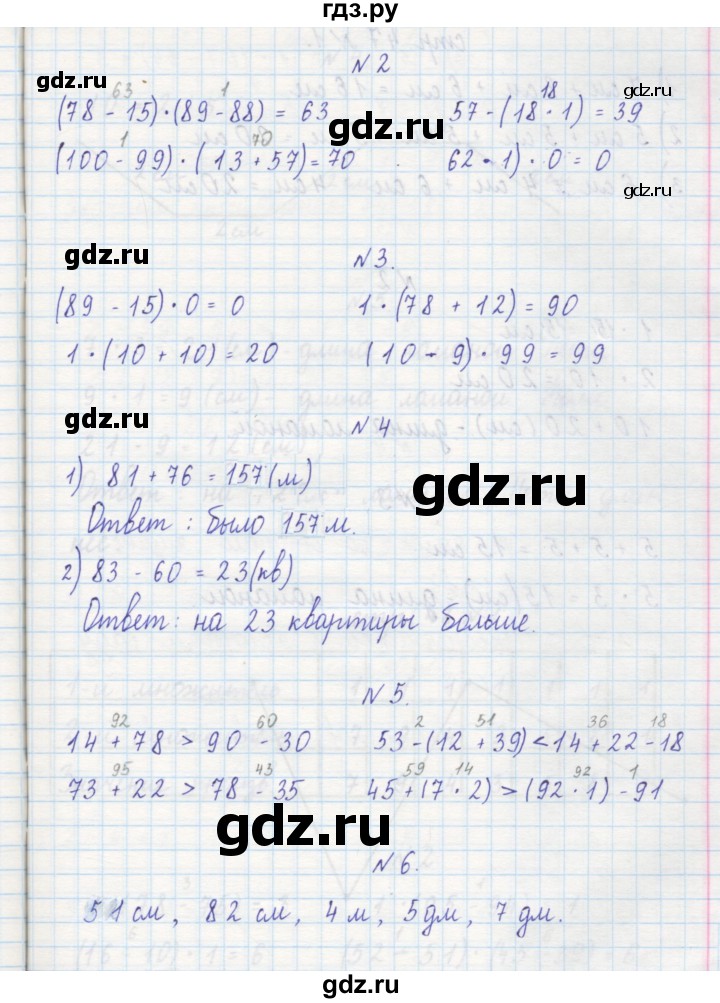 гдз.ру
N 2
63 1 18
(78 - 15) · (89 - 88) = 63 57 - (18 · 1) = 39
1 70
(100 - 99) · (13 + 57) = 70 62 · 1) · 0 = 0
gdz.ru gdz.ru
gdz.ru
N 3.
gdz.ru
(89 - 15) · 0 = 0 1 · (78 + 12) = 90
1 · (10 + 10) = 20 (10 - 9) · 99 = 99
gdz.ru
N 4
1) 81 + 76 = 157 (м)
gdz.ru
Ответ: было 157 м.
2) 83 - 60 = 23 (кв)
Ответ: на 23 квартиры больше.
N 5.
92 60 2 51 36 18
14 + 78 > 90 - 30 53 - (12 + 39) < 14 + 22 - 18
95 43 59 14 92 1
73 + 22 > 78 - 35 45 + (7 · 2) > (92 · 1) - 91
gdz.ru
N 6.
51 см, 82 см, 4 м, 5 дм, 7 дм.
gdz.ru gdz.ru
gdz.ru